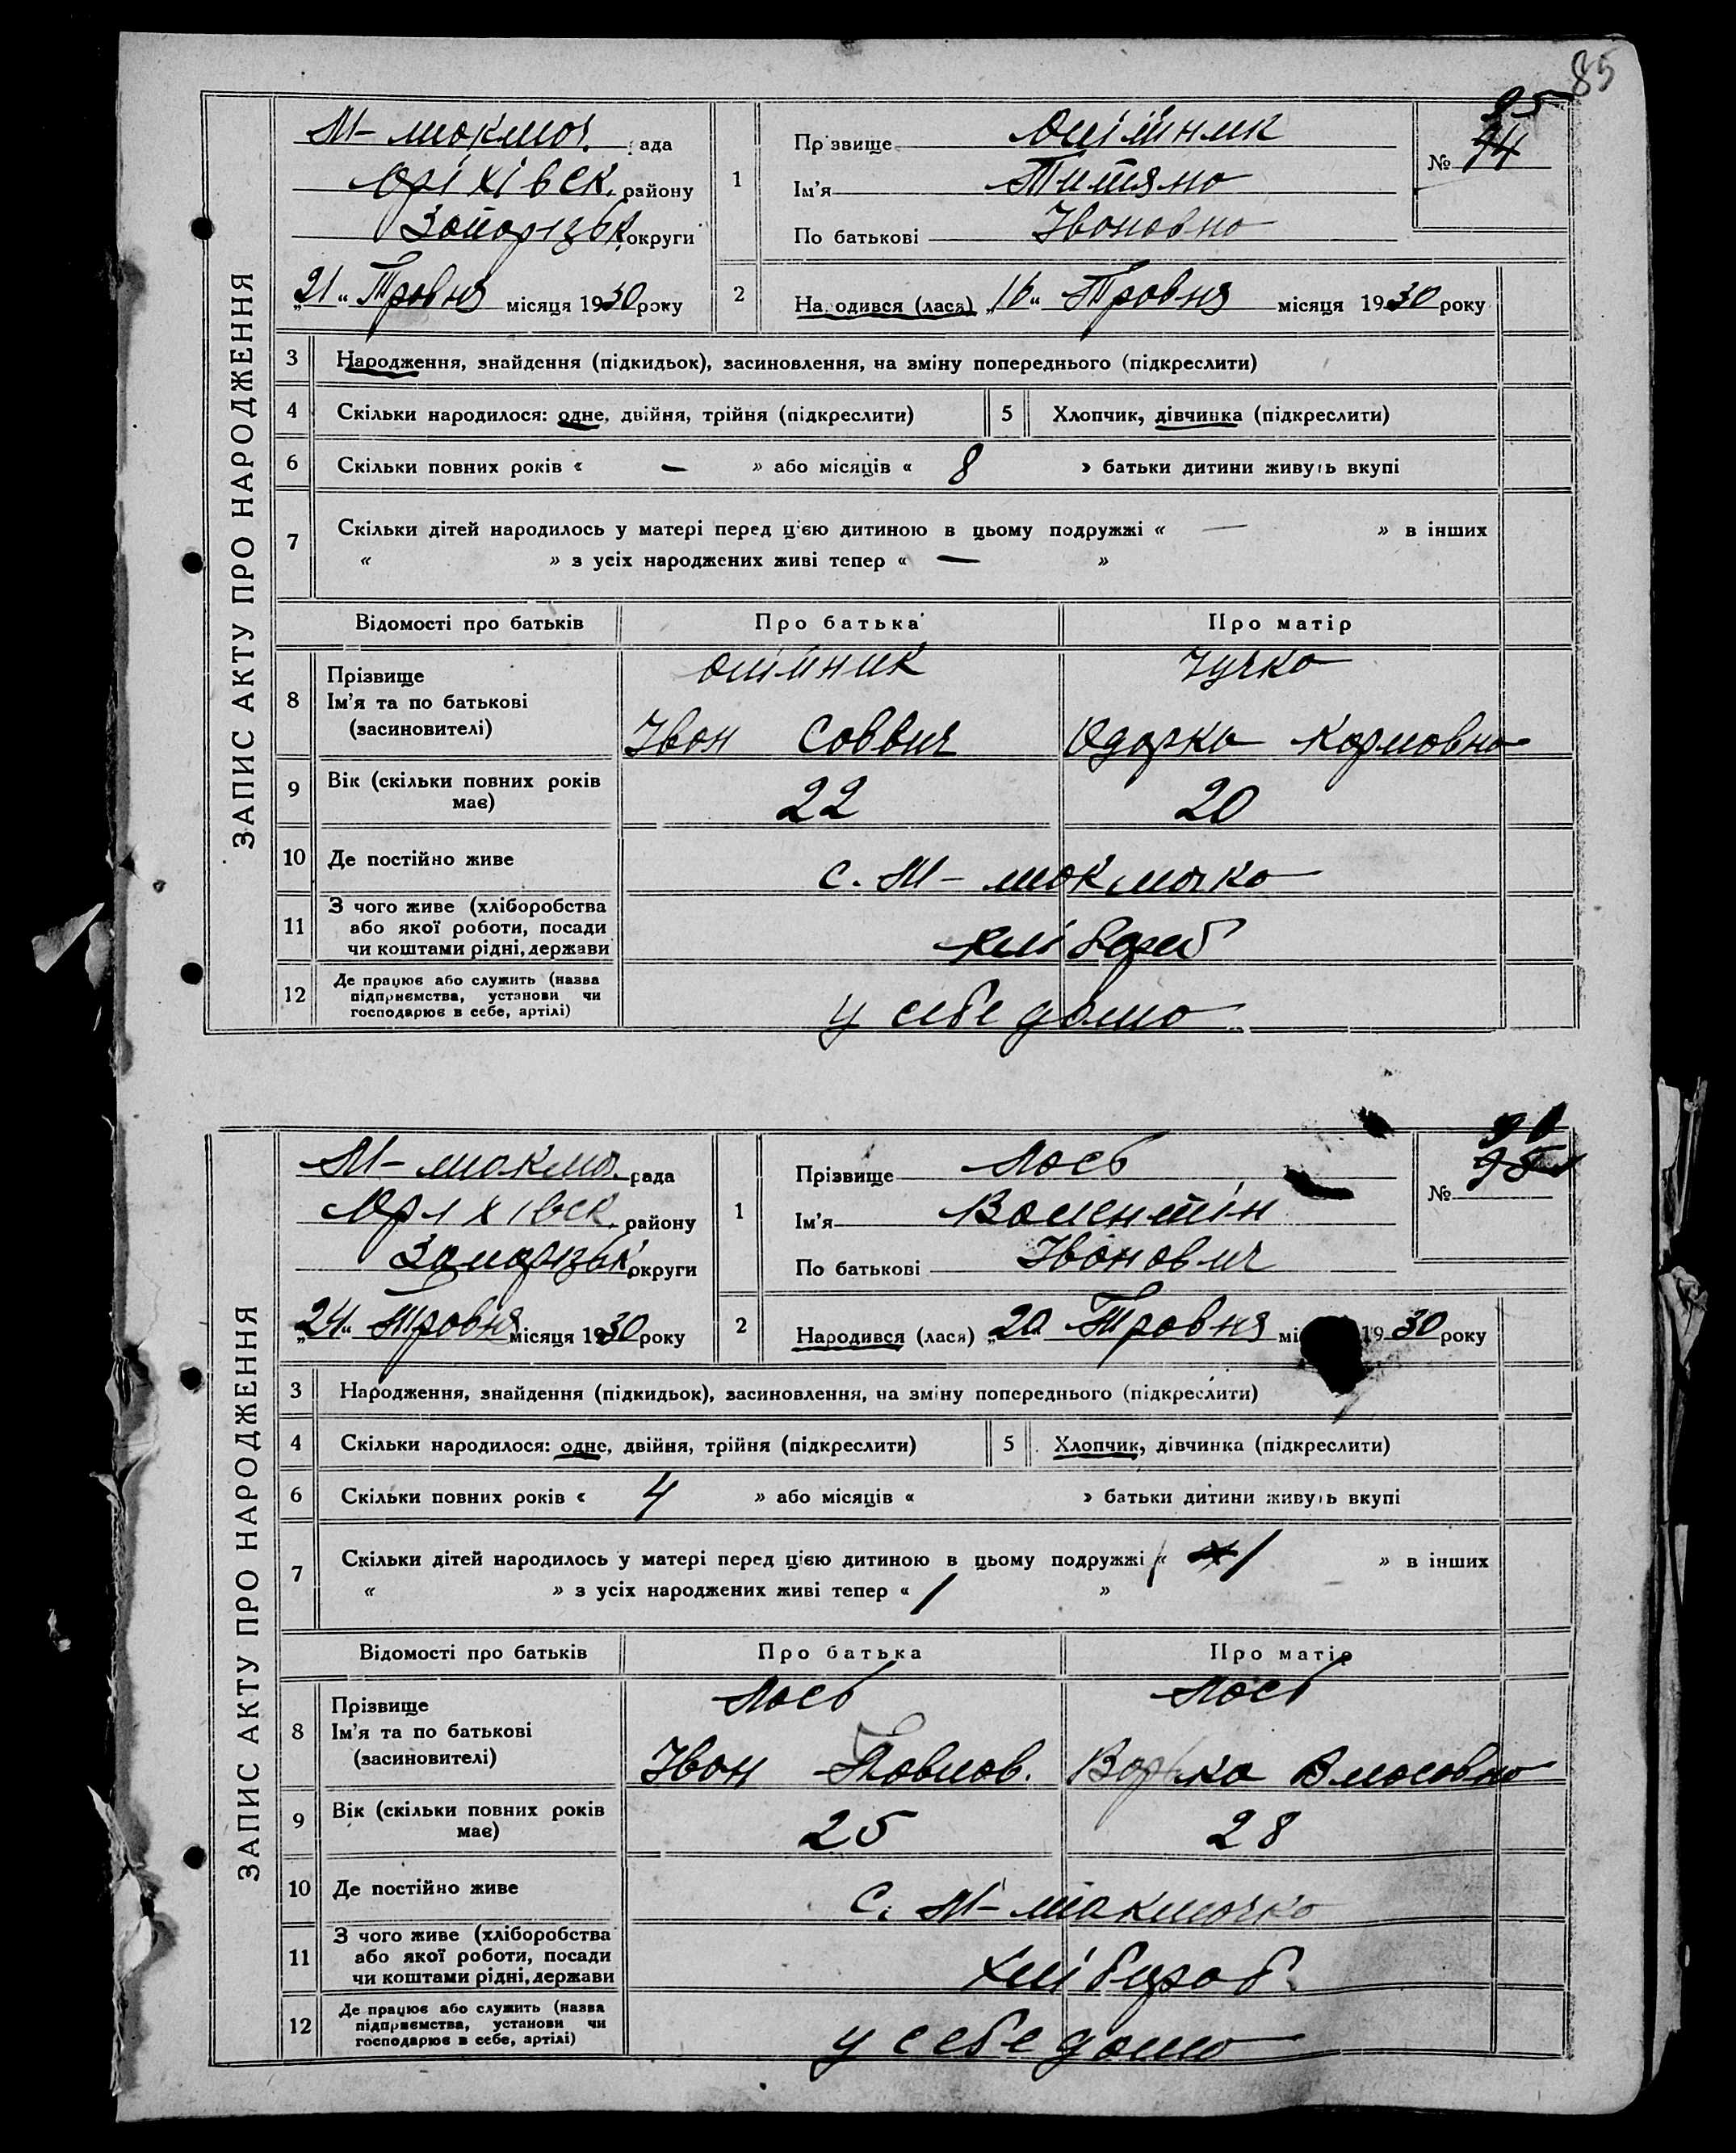 85
ЗАПИС АКТУ ПРО НАРОДЖЕННЯ
М-токмач. рада
Оріхівск. району
Запорізьк. округи
„21“ Травня місяця 1930 року
1
Прізвище Олійник
Ім'я Титяна
По батькові Івановна
№ 95
94
2
Народився (лася) „16“ Травня місяця 1930 року
3 Народження, знайдення (підкидьок), засиновлення, на зміну попереднього (підкреслити)
4 Скільки народилося: одне, двійня, трійня (підкреслити) 5 Хлопчик, дівчинка (підкреслити)
6 Скільки повних років « — » або місяців « 8 » батьки дитини живуть вкупі
7 Скільки дітей народилось у матері перед цією дитиною в цьому подружжі « — » в інших
« » з усіх народжених живі тепер « — »
Відомості про батьків Про батька Про матір
8 Прізвище Олійник Чучка
Ім'я та по батькові
(засиновителі) Іван Саввич Одарка Карповна
9 Вік (скільки повних років має) 22 20
10 Де постійно живе с. М-токмачка
11 З чого живе (хліборобства
або якої роботи, посади
чи коштами рідні, держави хлібороб
12 Де працює або служить (назва
підприємства, установи чи
господарює в себе, артілі) у себе дома
ЗАПИС АКТУ ПРО НАРОДЖЕННЯ
М-токмач. рада
Оріхівск. району
Запорізьк. округи
„24“ Травня місяця 1930 року
1
Прізвище Лось
Ім'я Валентін
По батькові Іванович
№ 96
95
2
Народився (лася) „20“ Травня мі 1930 року
3 Народження, знайдення (підкидьок), засиновлення, на зміну попереднього (підкреслити)
4 Скільки народилося: одне, двійня, трійня (підкреслити) 5 Хлопчик, дівчинка (підкреслити)
6 Скільки повних років « 4 » або місяців « » батьки дитини живуть вкупі
7 Скільки дітей народилось у матері перед цією дитиною в цьому подружжі « 1 » в інших
« » з усіх народжених живі тепер « 1 »
Відомості про батьків Про батька Про матір
8 Прізвище Лось Лось
Ім'я та по батькові
(засиновителі) Іван Павлов. Варка Власовна
9 Вік (скільки повних років має) 25 28
10 Де постійно живе с. М-токмачка
11 З чого живе (хліборобства
або якої роботи, посади
чи коштами рідні, держави хлібороб
12 Де працює або служить (назва
підприємства, установи чи
господарює в себе, артілі) у себе дома